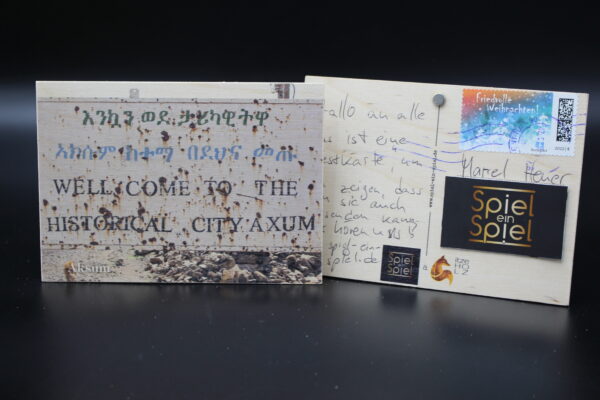 እንኳን ወደ ታሪካዊትዋ
አክሱም ከተማ በደህና መጡ
WELL COME TO THE
HISTORICAL CITY AXUM
Aksum
allo an alle
s ist eine
estkarte um
zeigen, dass
sie auch
senden kann
hören uns
spiel-ein-
spiel.de
Friedvolle
Weihnachten!
Marcel
Spiel
ein
Spiel
Spiel
ein
Spiel